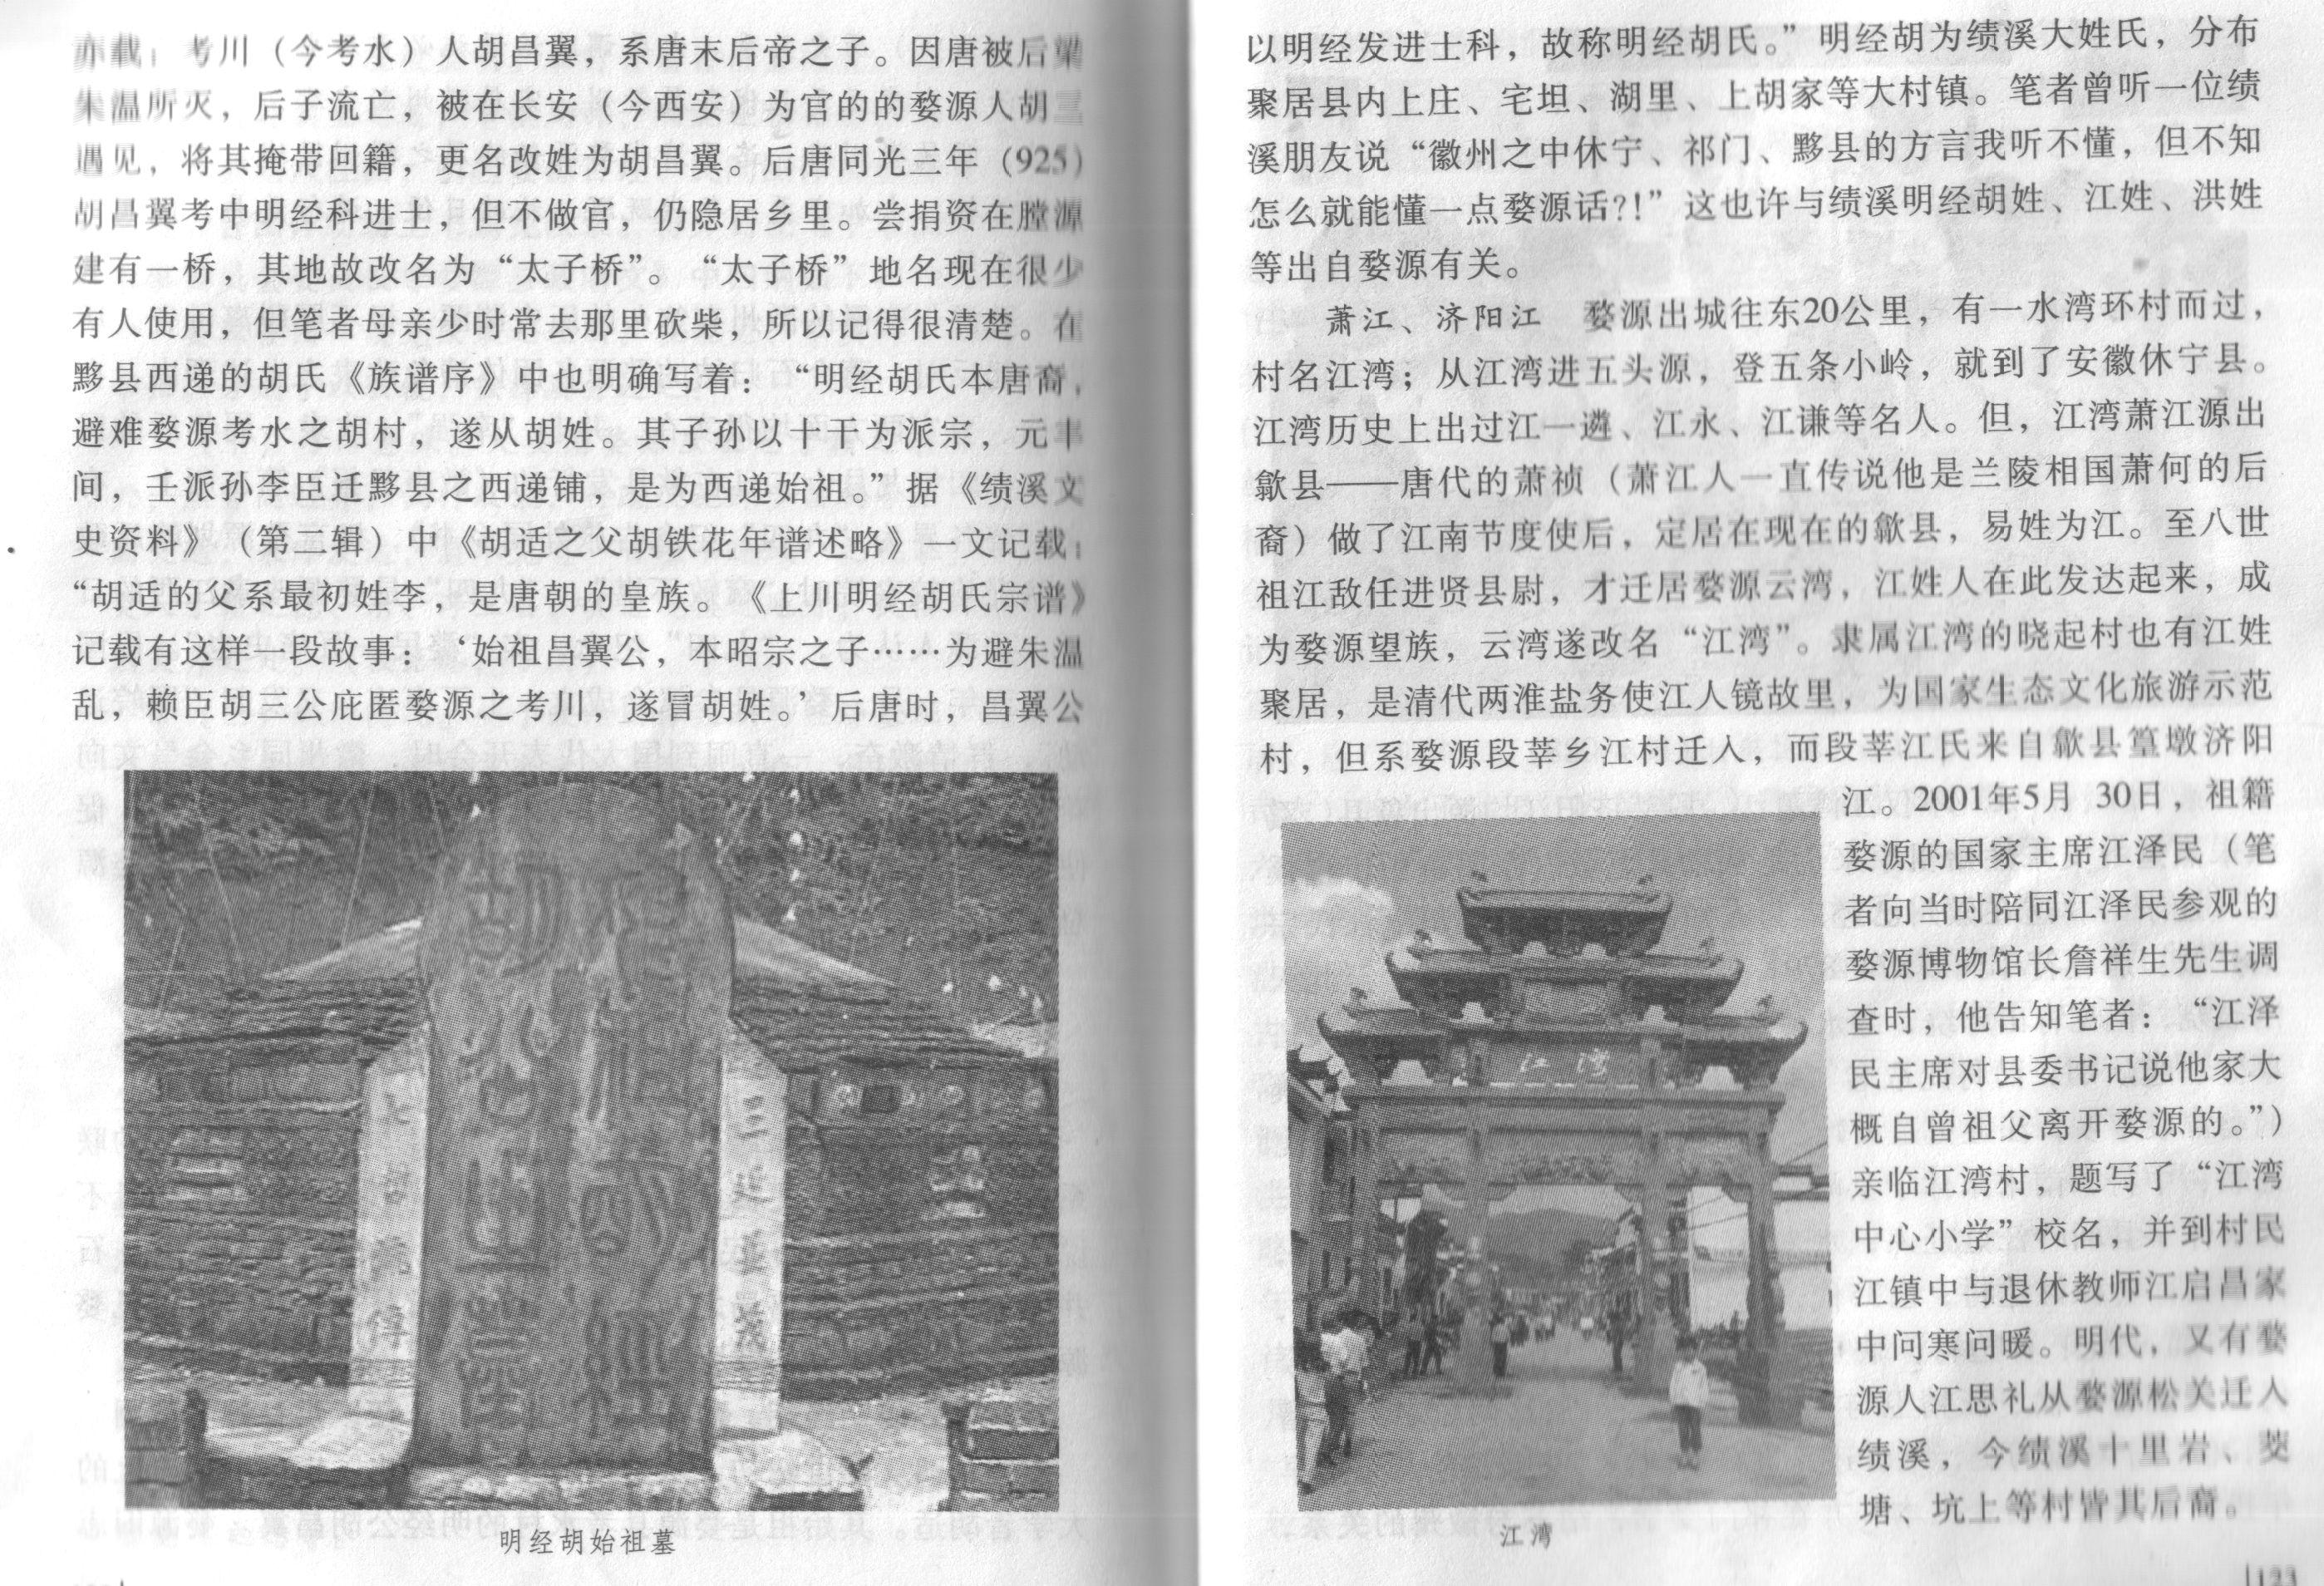 亦载：考川（今考水）人胡昌翼，系唐末后帝之子。因唐被后梁
朱温所灭，后子流亡，被在长安（今西安）为官的的婺源人胡三
遇见，将其掩带回籍，更名改姓为胡昌翼。后唐同光三年（925）
胡昌翼考中明经科进士，但不做官，仍隐居乡里。尝捐资在膛源
建有一桥，其地故改名为“太子桥”。“太子桥”地名现在很少
有人使用，但笔者母亲少时常去那里砍柴，所以记得很清楚。在
黟县西递的胡氏《族谱序》中也明确写着：“明经胡氏本唐裔，
避难婺源考水之胡村，遂从胡姓。其子孙以十干为派宗，元丰
间，壬派孙李臣迁黟县之西递铺，是为西递始祖。”据《绩溪文
史资料》（第二辑）中《胡适之父胡铁花年谱述略》一文记载：
“胡适的父系最初姓李，是唐朝的皇族。《上川明经胡氏宗谱》
记载有这样一段故事：‘始祖昌翼公，本昭宗之子……为避朱温
乱，赖臣胡三公庇匿婺源之考川，遂冒胡姓。’后唐时，昌翼公
胡公之墓
始祖明经
三延
明经胡始祖墓
以明经发进士科，故称明经胡氏。”明经胡为绩溪大姓氏，分布
聚居县内上庄、宅坦、湖里、上胡家等大村镇。笔者曾听一位绩
溪朋友说“徽州之中休宁、祁门、黟县的方言我听不懂，但不知
怎么就能懂一点婺源话?!”这也许与绩溪明经胡姓、江姓、洪姓
等出自婺源有关。
萧江、济阳江　婺源出城往东20公里，有一水湾环村而过，
村名江湾；从江湾进五头源，登五条小岭，就到了安徽休宁县。
江湾历史上出过江一遴、江永、江谦等名人。但，江湾萧江源出
歙县——唐代的萧祯（萧江人一直传说他是兰陵相国萧何的后
裔）做了江南节度使后，定居在现在的歙县，易姓为江。至八世
祖江敌任进贤县尉，才迁居婺源云湾，江姓人在此发达起来，成
为婺源望族，云湾遂改名“江湾”。隶属江湾的晓起村也有江姓
聚居，是清代两淮盐务使江人镜故里，为国家生态文化旅游示范
村，但系婺源段莘乡江村迁入，而段莘江氏来自歙县篁墩济阳
江。2001年5月 30日，祖籍
婺源的国家主席江泽民（笔
者向当时陪同江泽民参观的
婺源博物馆长詹祥生先生调
查时，他告知笔者：“江泽
民主席对县委书记说他家大
概自曾祖父离开婺源的。”）
亲临江湾村，题写了“江湾
中心小学”校名，并到村民
江镇中与退休教师江启昌家
中问寒问暖。明代，又有婺
源人江思礼从婺源松关迁入
绩溪，今绩溪十里岩、茭
塘、坑上等村皆其后裔。
江湾
江湾
123